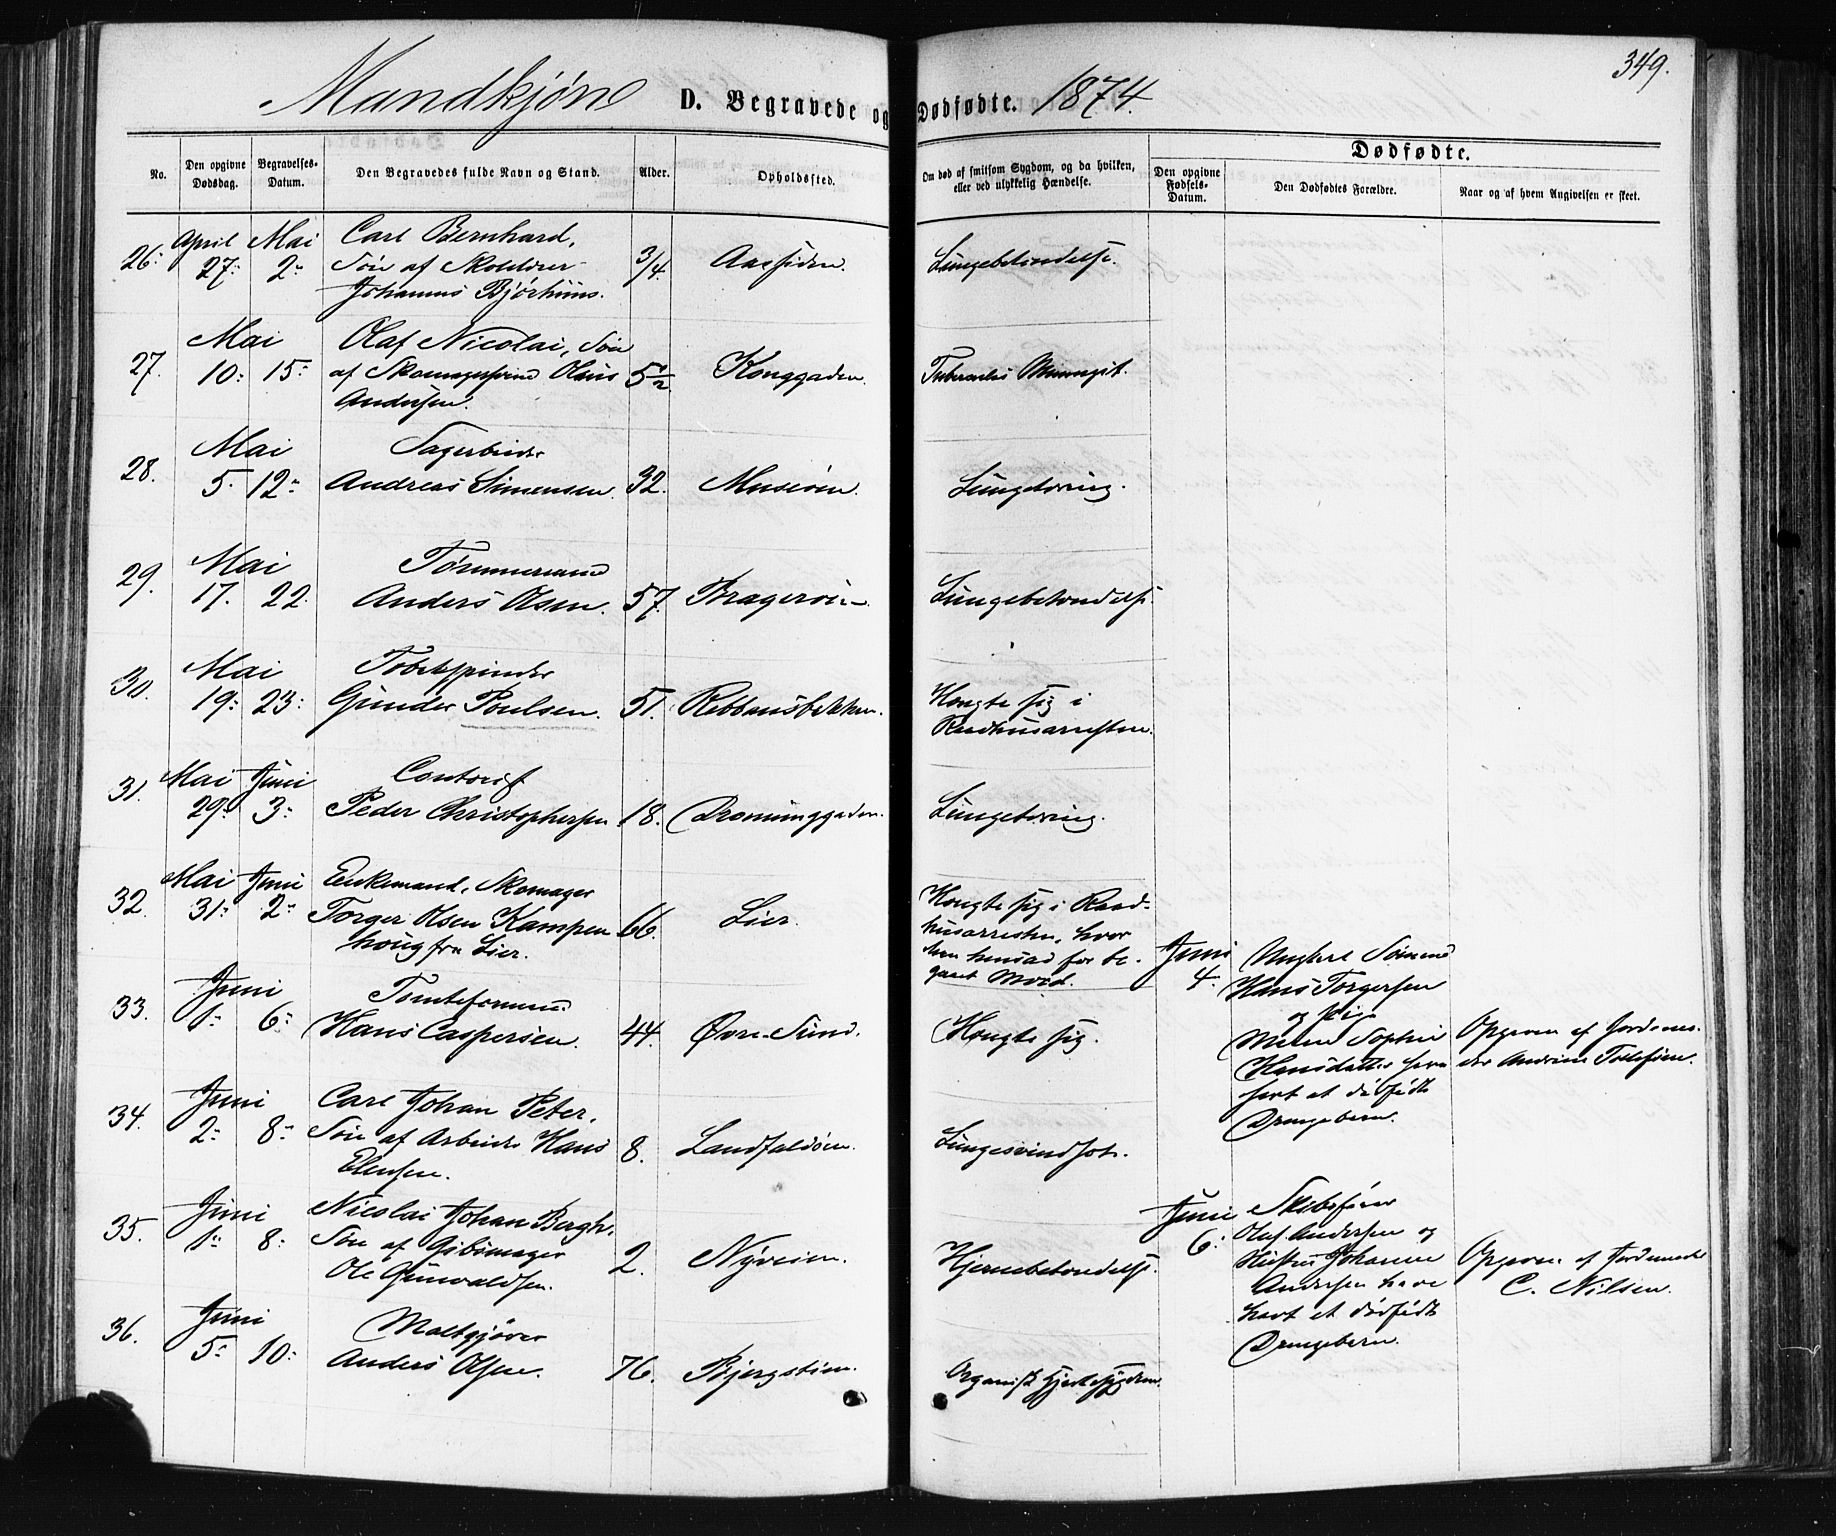 349.
Mandkjøn D. Begravede og Dødfødte. 1874.
No.
Den opgivne Dødsdag.
Begravelses-Datum.
Den Begravedes fulde Navn og Stand.
Alder.
Opholdssted.
Om død af smitsom Sygdom, og da hvilken,
eller ved ulykkelig Hændelse.
Dødfødte.
Den opgivne Fødsels-Datum.
Den Dødfødtes Forældre.
Naar og af hvem Angivelsen er skeet.
26. April 27. Mai 2.
Carl Bernhard,
Søn af
Johannes
3/4.
Aassiden.
Lungebetændelse.
27. Mai 10. 15.
Olaf Nicolai, Søn
af Skomagersvend Olaus
Andersen.
5 1/2
Konggaden.
Tubercules Meningit.
28. Mai 5. 12.
Sagarbeider
Andreas Simensen.
32.
Muusøen.
Lungetæring.
29. Mai 17. 22.
Tømmermand
Anders Olsen.
57.
Bragerøen.
Lungebetændelse.
30. Mai 19. 23.
Tobakspinder
Gunder Poulsen.
51.
Rebbansbakken.
Hængte sig i
Raadhusarresten.
31. Mai 29. Juni 3.
Contorist
Peder Christophersen
18.
Dronninggaden.
Lungetæring.
32. Mai 31. Juni 2.
Enkemand, Skomager
Torger Olsen Kampen-
houg fra Lier.
66.
Lier.
Hængte sig i Raad-
husarresten, hvor
han hensad for be-
gaaet Mord.
33. Juni 1. 6.
Tomteformand
Hans Caspersen.
44.
Øvre Sund.
Hængte sig.
Juni 4.
Ungkarl Sømand
Hans Torgersen
og Pige
Maren Sophie
Hansdatter have
havt et dødfødt
Drengebarn.
Opgiven af Jordemo-
der Andrine Tollefsen.
34. Juni 2. 8.
Carl Johan Peter,
Søn af Arbeider Hans
Elensen.
8.
Landfaldøen.
Lungesvindsot.
35. Juni 1. 8.
Nicolai Johan Bergh,
Søn af Gibsmager
Ole Grunvaldsen.
2.
Nyveien.
Hjernebetændelse.
Juni 6.
Skibsfører
Olaf Andersen og
Hustru Johanne
Andersen have
havt et dødfødt
Drengebarn.
Opgiven af Jordemoder
C. Nilsen.
36. Juni 5. 10.
Maltgjører
Anders Olsen.
76.
Bjergstien.
Organisk Hjertesygdom.